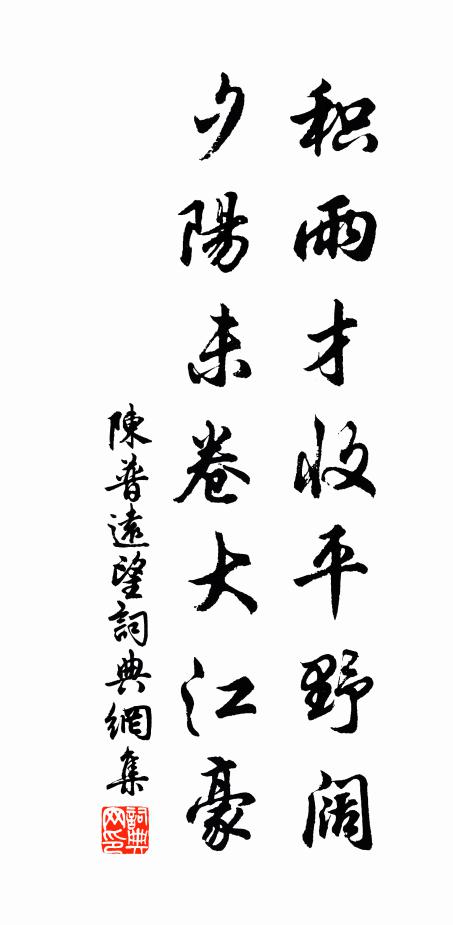 积雨才收平野阔
夕陽未卷大江豪
陳普遠望詞典網集
詞典
网印